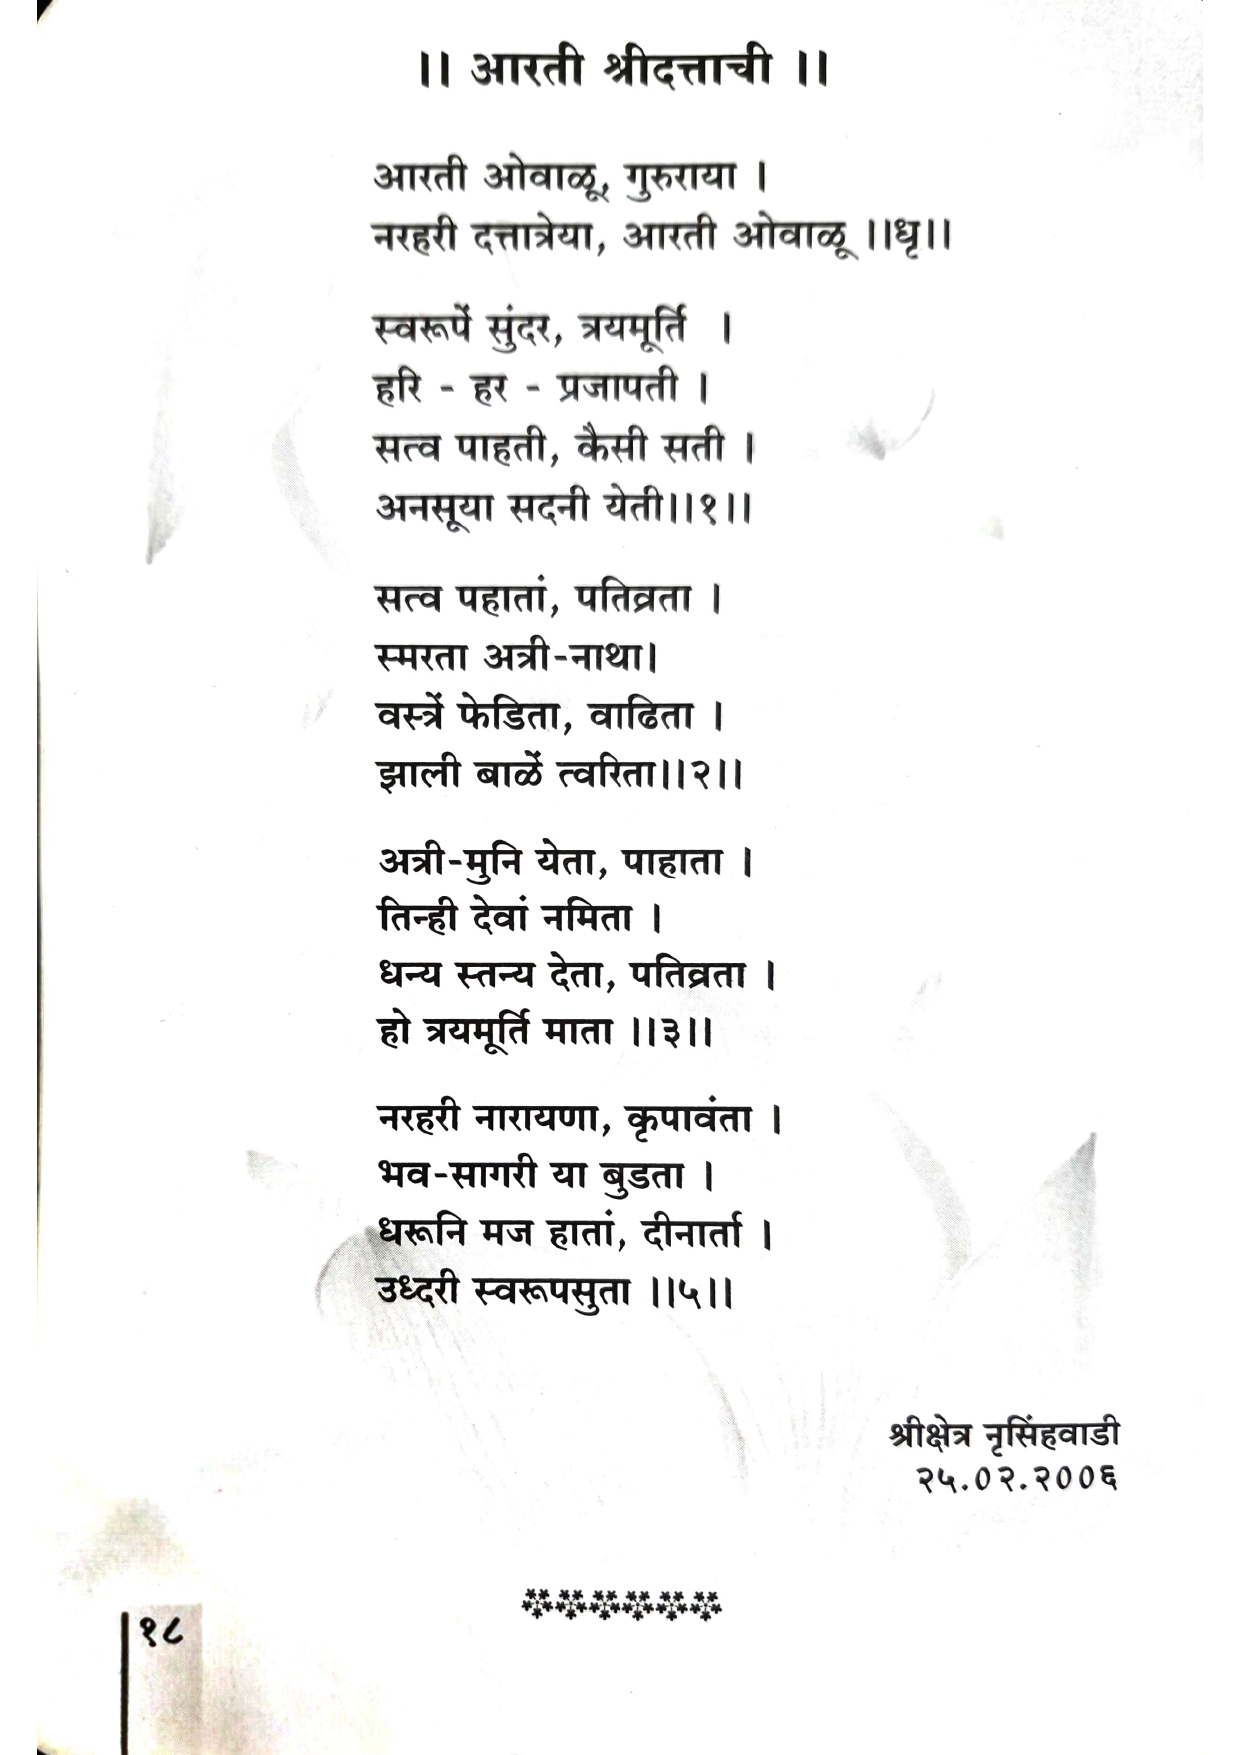 ।। आरती श्रीदत्ताची ।।
आरती ओवाळू, गुरुराया ।
नरहरी दत्तात्रेया, आरती ओवाळू ।।धृ।।
स्वरूपें सुंदर, त्रयमूर्ति ।
हरि - हर - प्रजापती ।
सत्व पाहती, कैसी सती ।
अनसूया सदनी येती।।१।।
सत्व पहातां, पतिव्रता ।
स्मरता अत्री-नाथा।
वस्त्रें फेडिता, वाढिता ।
झाली बाळें त्वरिता।।२।।
अत्री-मुनि येता, पाहाता ।
तिन्ही देवां नमिता ।
धन्य स्तन्य देता, पतिव्रता ।
हो त्रयमूर्ति माता ।।३।।
नरहरी नारायणा, कृपावंता ।
भव-सागरी या बुडता ।
धरूनि मज हातां, दीनार्ता ।
उध्दरी स्वरूपसुता ।।५।।
श्रीक्षेत्र नृसिंहवाडी
२५.०२.२००६
१८